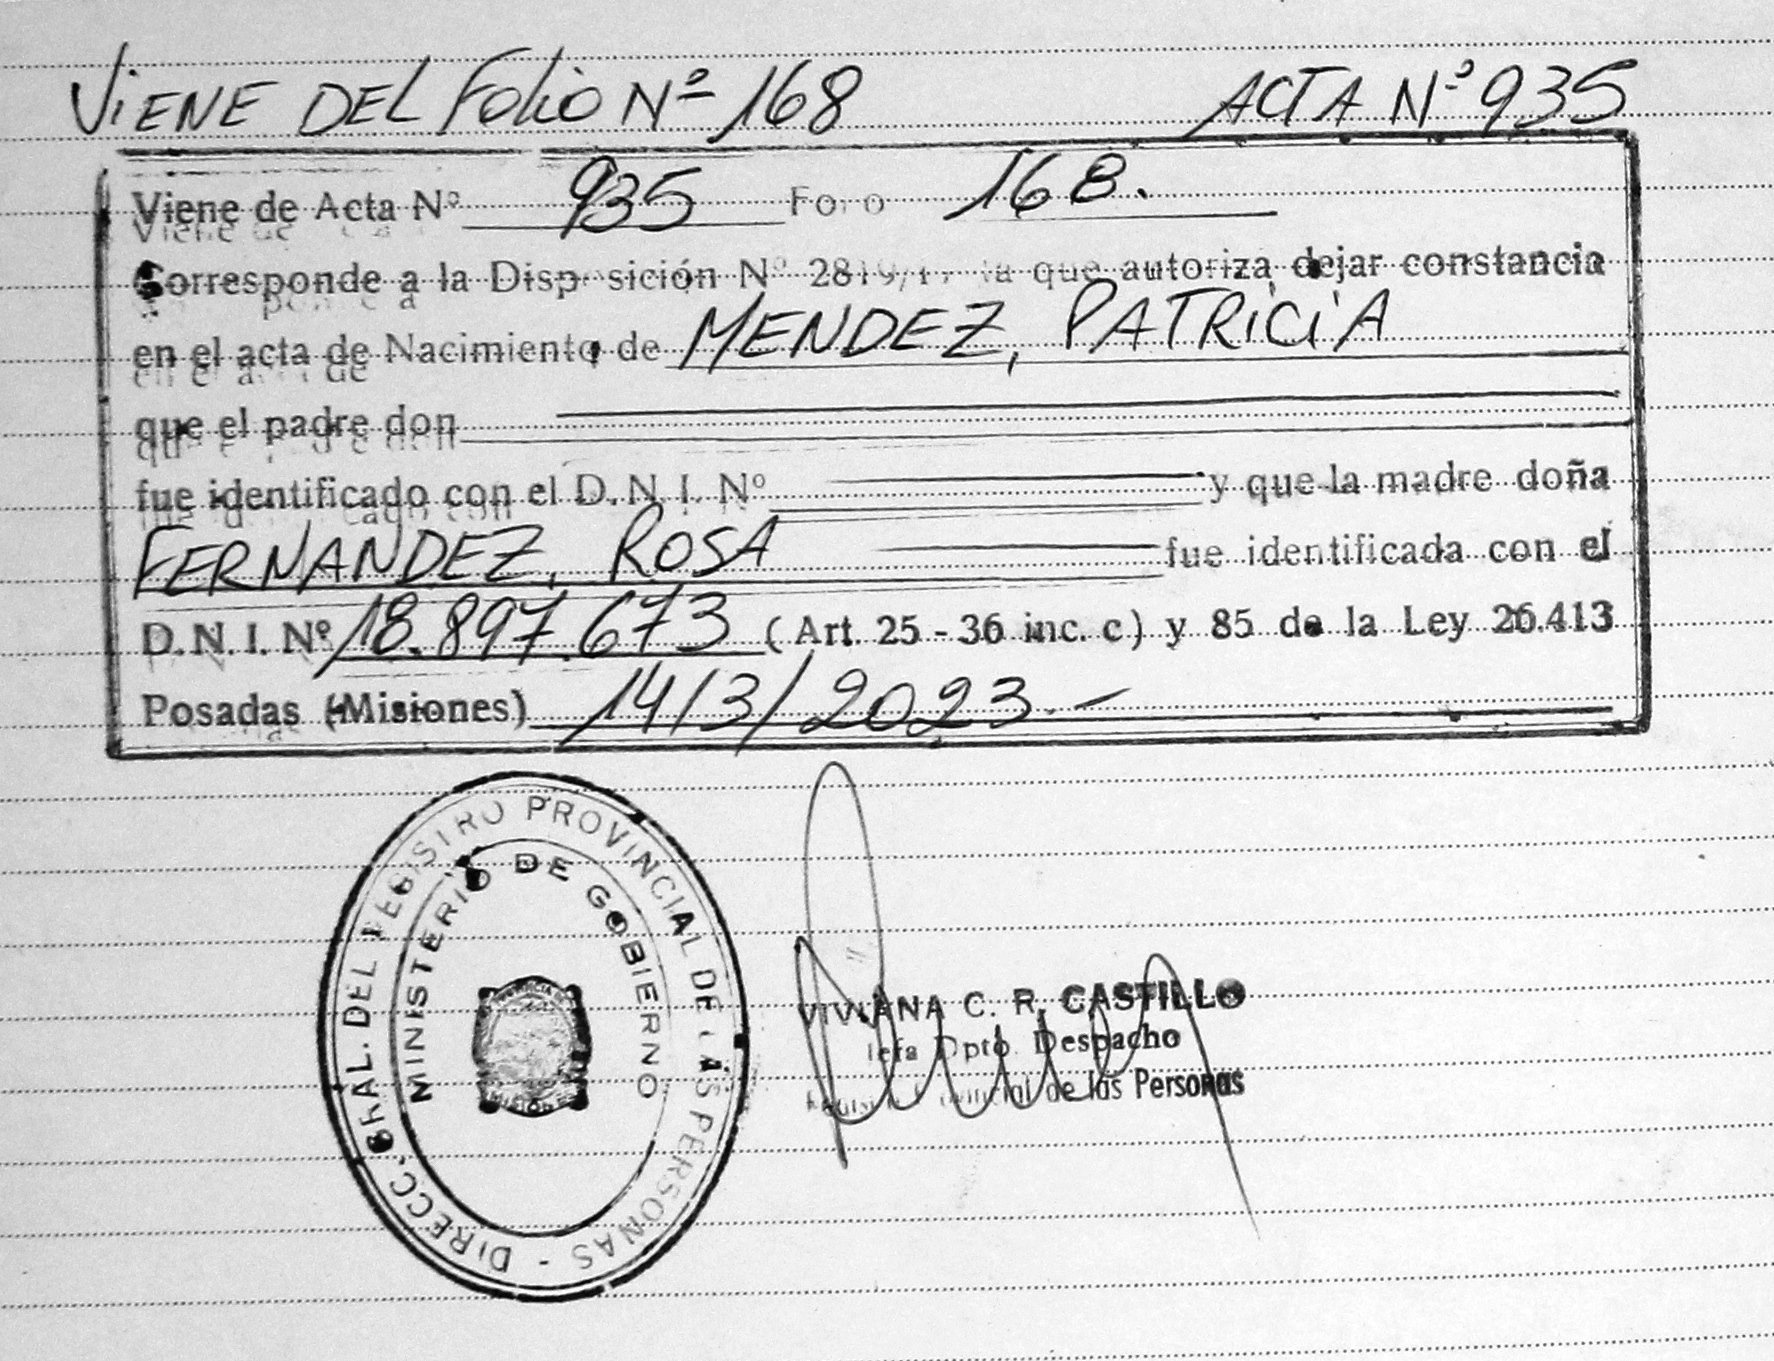 VIENE DEL FOLIO Nº 168 ACTA Nº 935
Viene de Acta Nº 935 Folio 168.
Corresponde a la Disposición Nº la que autoriza dejar constancia
en el acta de Nacimiento de MENDEZ, PATRICIA
que el padre don
fue identificado con el D.N.I. Nº y que la madre doña
FERNANDEZ, ROSA fue identificada con el
D.N.I. Nº 18.897.673 (Art. 25 - 36 inc. c) y 85 de la Ley 26.413
Posadas (Misiones) 14/3/2023.-
DIRECC. GRAL. DEL REGISTRO PROVINCIAL DE LAS PERSONAS -
MINISTERIO DE GOBIERNO
VIVIANA C. R. CASTILLO
Jefa Dpto. Despacho
de las Personas